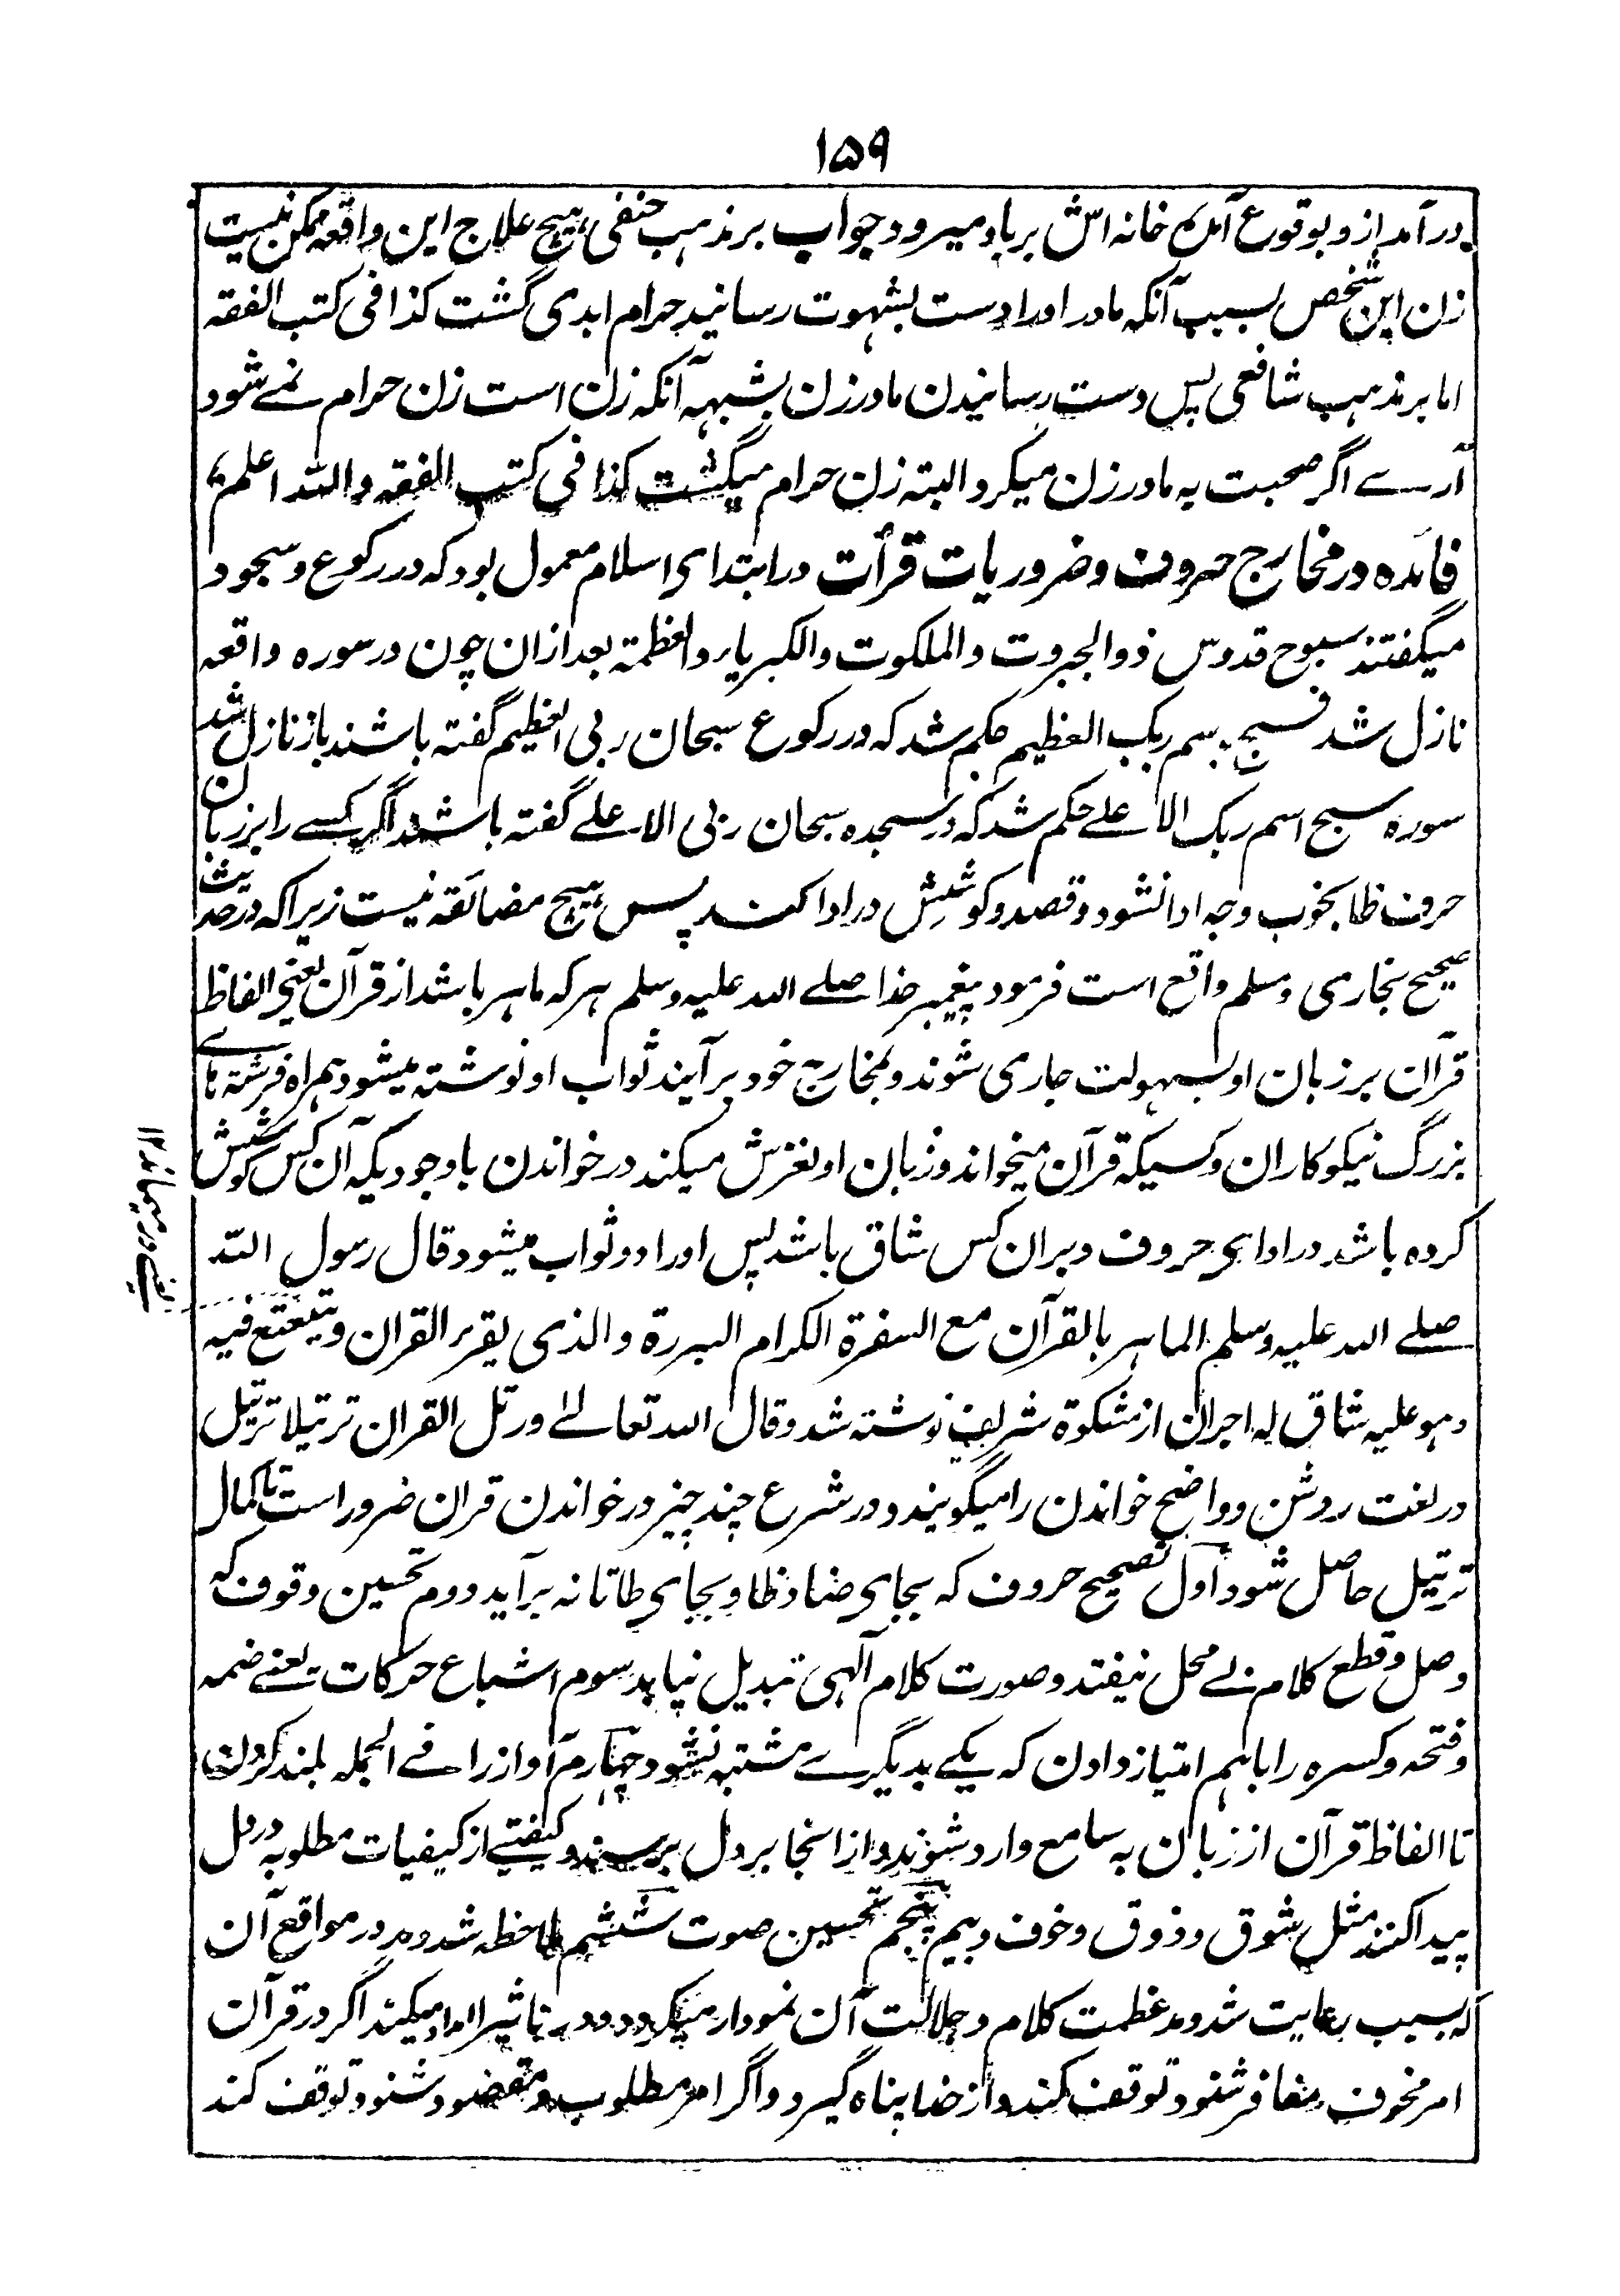 ۱۵۹
در آمد از و بوقوع آمده خانه اش برباد میرود جواب بر مذهب حنفی هیچ علاج این واقعه ممکن نیست
زن این شخص بسبب آنکه مادر او را دست بشهوت رسانید حرام ابدی گشت کذا فی کتب الفقه
اما بر مذهب شافعی پس دست رسانیدن مادر زن بشبهه آنکه زن است زن حرام نمے شود
آرے اگر صحبت به مادر زن میکرد البته زن حرام میگشت کذا فی کتب الفقه والله اعلم
فائده در مخارج حروف و ضروریات قرأت در ابتدای اسلام معمول بود که در رکوع و سجود
میگفتند سبوح قدوس ذو الجبروت والملکوت والکبریاء والعظمة بعد ازان چون در سوره واقعه
نازل شد فسبح باسم ربک العظیم حکم شد که در رکوع سبحان ربی العظیم گفته باشند باز نازل شد
سوره سبح اسم ربک الاعلے حکم شد که در سجده سبحان ربی الاعلے گفته باشند اگر کسے را بر زبان
حروف ظا بخوب وجه ادا نشود و قصد و کوشش در ادا کند پس هیچ مضائقه نیست زیرا که در حدیث
صحیح بخاری و مسلم واقع است فرمود پیغمبر خدا صلے الله علیه وسلم هر که ماهر باشد از قرآن یعنی الفاظ
قرآن بر زبان او بسهولت جاری شوند و بمخارج خود بر آیند ثواب او نوشته میشود همراه فرشته هاے
بزرگ نیکوکاران و کسیکه قرآن میخواند و زبان او لغزش میکند در خواندن باوجودیکه آن کس کوشش
کرده باشد در ادای حروف و بران کس شاق باشد پس او را دو ثواب میشود قال رسول الله
صلے الله علیه وسلم الماهر بالقرآن مع السفرة الکرام البررة والذی یقرء القران و یتتعتع فیه
وهو علیه شاق له اجران از مشکوة شریف نوشته شد و قال الله تعالے ورتل القران ترتیلا ترتیل
در لغت روشن و واضح خواندن را میگویند و در شرع چند چیز در خواندن قران ضرور است تا کمال
ترتیل حاصل شود اول تصحیح حروف که بجای ضاد ظا و بجای طا تا نه بر آید دوم تحسین وقوف که
وصل و قطع کلام بے محل نیفتد و صورت کلام آلهی تبدیل نیابد سوم اشباع حرکات یعنے ضمه
و فتحه و کسره را باهم امتیاز دادن که یکے بدیگرے مشتبه نشود چهارم آواز را فے الجمله بلند کردن
تا الفاظ قرآن از زبان به سامع وارد شوند و از انجا بر دل برسند و کیفیتے از کیفیات مطلوبه در دل
پیدا کنند مثل شوق و ذوق و خوف و بیم پنجم تحسین صوت ششم ملاحظه شد و مد در مواقع آن
که بسبب رعایت شد و مد عظمت کلام و جلالت آن نمودار میگردد و در تاثیر امداد میکند اگر در قرآن
امر مخوف شنود توقف کند و از خدا پناه گیرد و اگر امر مطلوب و مقصود شنود توقف کند
یعنے در میماند ۱۲